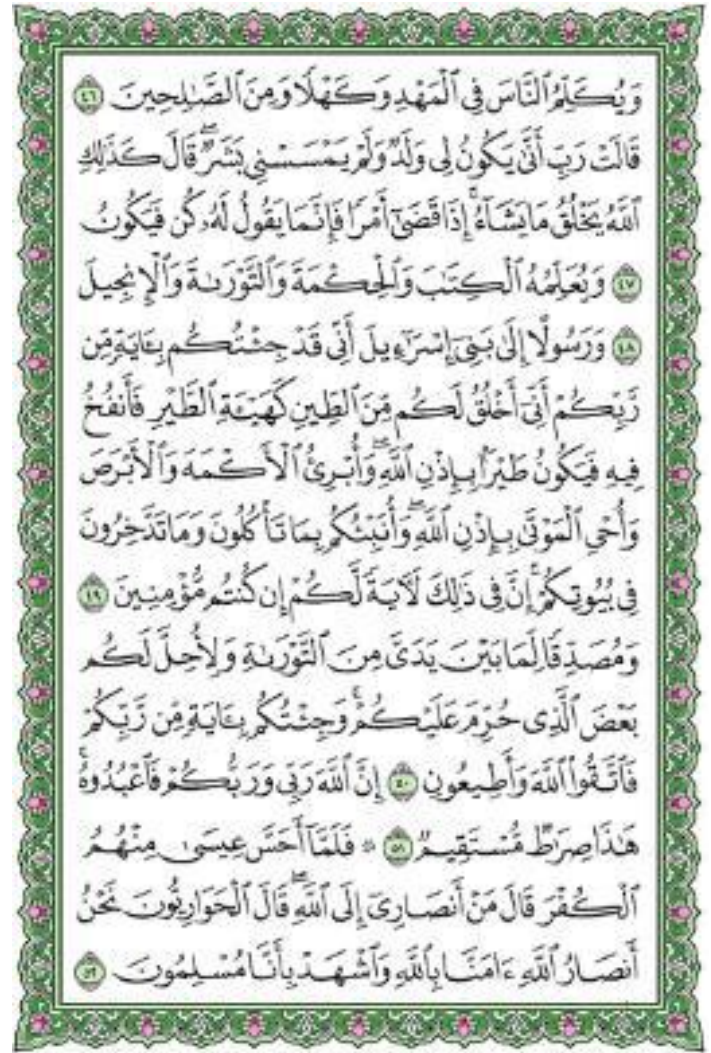 وَيُكَلِّمُ النَّاسَ فِي الْمَهْدِ وَكَهْلًا وَمِنَ الصَّٰلِحِينَ ٤٦
قَالَتْ رَبِّ أَنَّىٰ يَكُونُ لِي وَلَدٌ وَلَمْ يَمْسَسْنِي بَشَرٌ ۖ قَالَ كَذَٰلِكِ
ٱللَّهُ يَخْلُقُ مَا يَشَآءُ ۚ إِذَا قَضَىٰٓ أَمْرًا فَإِنَّمَا يَقُولُ لَهُۥ كُن فَيَكُونُ
٤٧ وَيُعَلِّمُهُ ٱلْكِتَٰبَ وَٱلْحِكْمَةَ وَٱلتَّوْرَىٰةَ وَٱلْإِنجِيلَ
٤٨ وَرَسُولًا إِلَىٰ بَنِيٓ إِسْرَٰٓءِيلَ أَنِّي قَدْ جِئْتُكُم بِـَٔايَةٍ مِّن
رَّبِّكُمْ أَنِّيٓ أَخْلُقُ لَكُم مِّنَ ٱلطِّينِ كَهَيْـَٔةِ ٱلطَّيْرِ فَأَنفُخُ
فِيهِ فَيَكُونُ طَيْرًۢا بِإِذْنِ ٱللَّهِ ۖ وَأُبْرِئُ ٱلْأَكْمَهَ وَٱلْأَبْرَصَ
وَأُحْيِ ٱلْمَوْتَىٰ بِإِذْنِ ٱللَّهِ ۖ وَأُنَبِّئُكُم بِمَا تَأْكُلُونَ وَمَا تَدَّخِرُونَ
فِي بُيُوتِكُمْ ۚ إِنَّ فِي ذَٰلِكَ لَـَٔايَةً لَّكُمْ إِن كُنتُم مُّؤْمِنِينَ ٤٩
وَمُصَدِّقًا لِّمَا بَيْنَ يَدَىَّ مِنَ ٱلتَّوْرَىٰةِ وَلِأُحِلَّ لَكُم
بَعْضَ ٱلَّذِي حُرِّمَ عَلَيْكُمْ ۚ وَجِئْتُكُم بِـَٔايَةٍ مِّن رَّبِّكُمْ
فَٱتَّقُوا۟ ٱللَّهَ وَأَطِيعُونِ ٥٠ إِنَّ ٱللَّهَ رَبِّي وَرَبُّكُمْ فَٱعْبُدُوهُ ۗ
هَٰذَا صِرَٰطٌ مُّسْتَقِيمٌ ٥١ ۞ فَلَمَّآ أَحَسَّ عِيسَىٰ مِنْهُمُ
ٱلْكُفْرَ قَالَ مَنْ أَنصَارِىٓ إِلَى ٱللَّهِ ۖ قَالَ ٱلْحَوَارِيُّونَ نَحْنُ
أَنصَارُ ٱللَّهِ ءَامَنَّا بِٱللَّهِ وَٱشْهَدْ بِأَنَّا مُسْلِمُونَ ٥٢